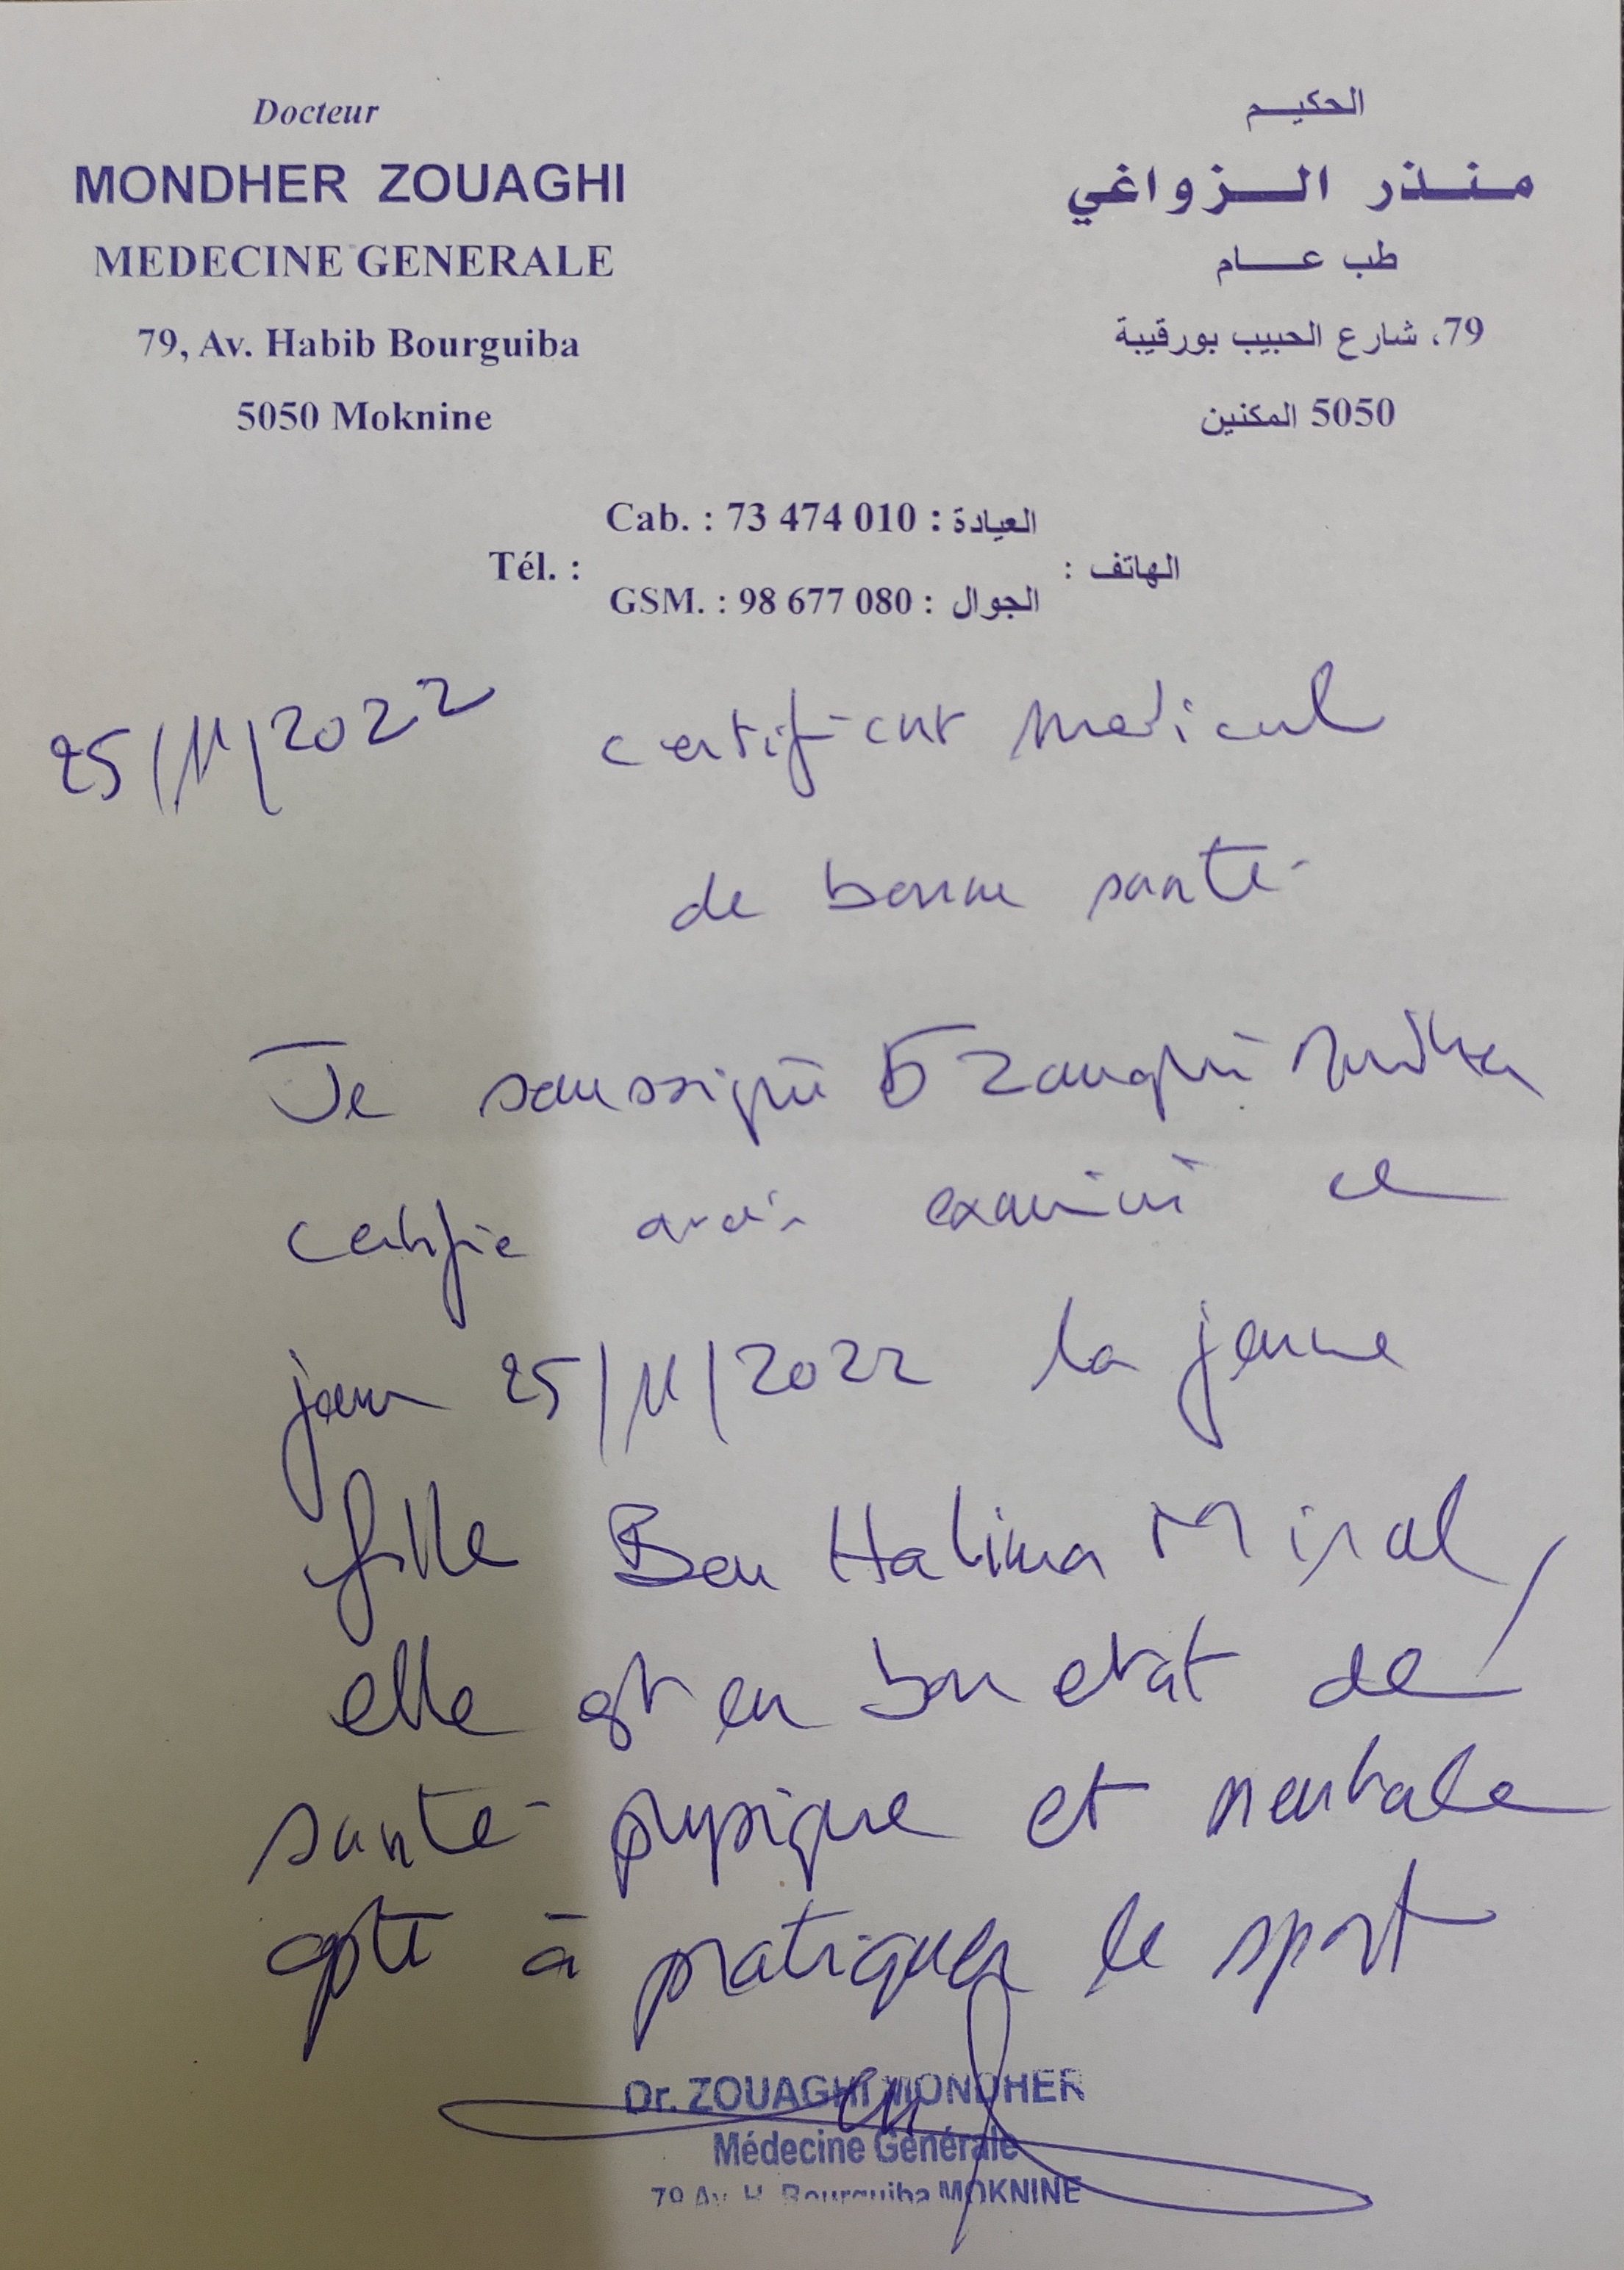 Docteur
MONDHER ZOUAGHI
MEDECINE GENERALE
79, Av. Habib Bourguiba
5050 Moknine
الحكيم
منذر الزواغي
طب عام
79، شارع الحبيب بورقيبة
5050 المكنين
Cab. : 73 474 010 : العيادة
Tél. : الهاتف :
GSM. : 98 677 080 : الجوال
25/11/2022 certificat medical
de bonne santé
Je soussigné Dr Zouaghi Mondher
certifie avoir examiné ce
jour 25/11/2022 la jeune
fille Ben Halima
elle est en bon etat de
santé physique et mentale
apte à pratiquer le sport
Dr. ZOUAGHI MONDHER
Médecine Générale
79 Av. H. Bourguiba MOKNINE